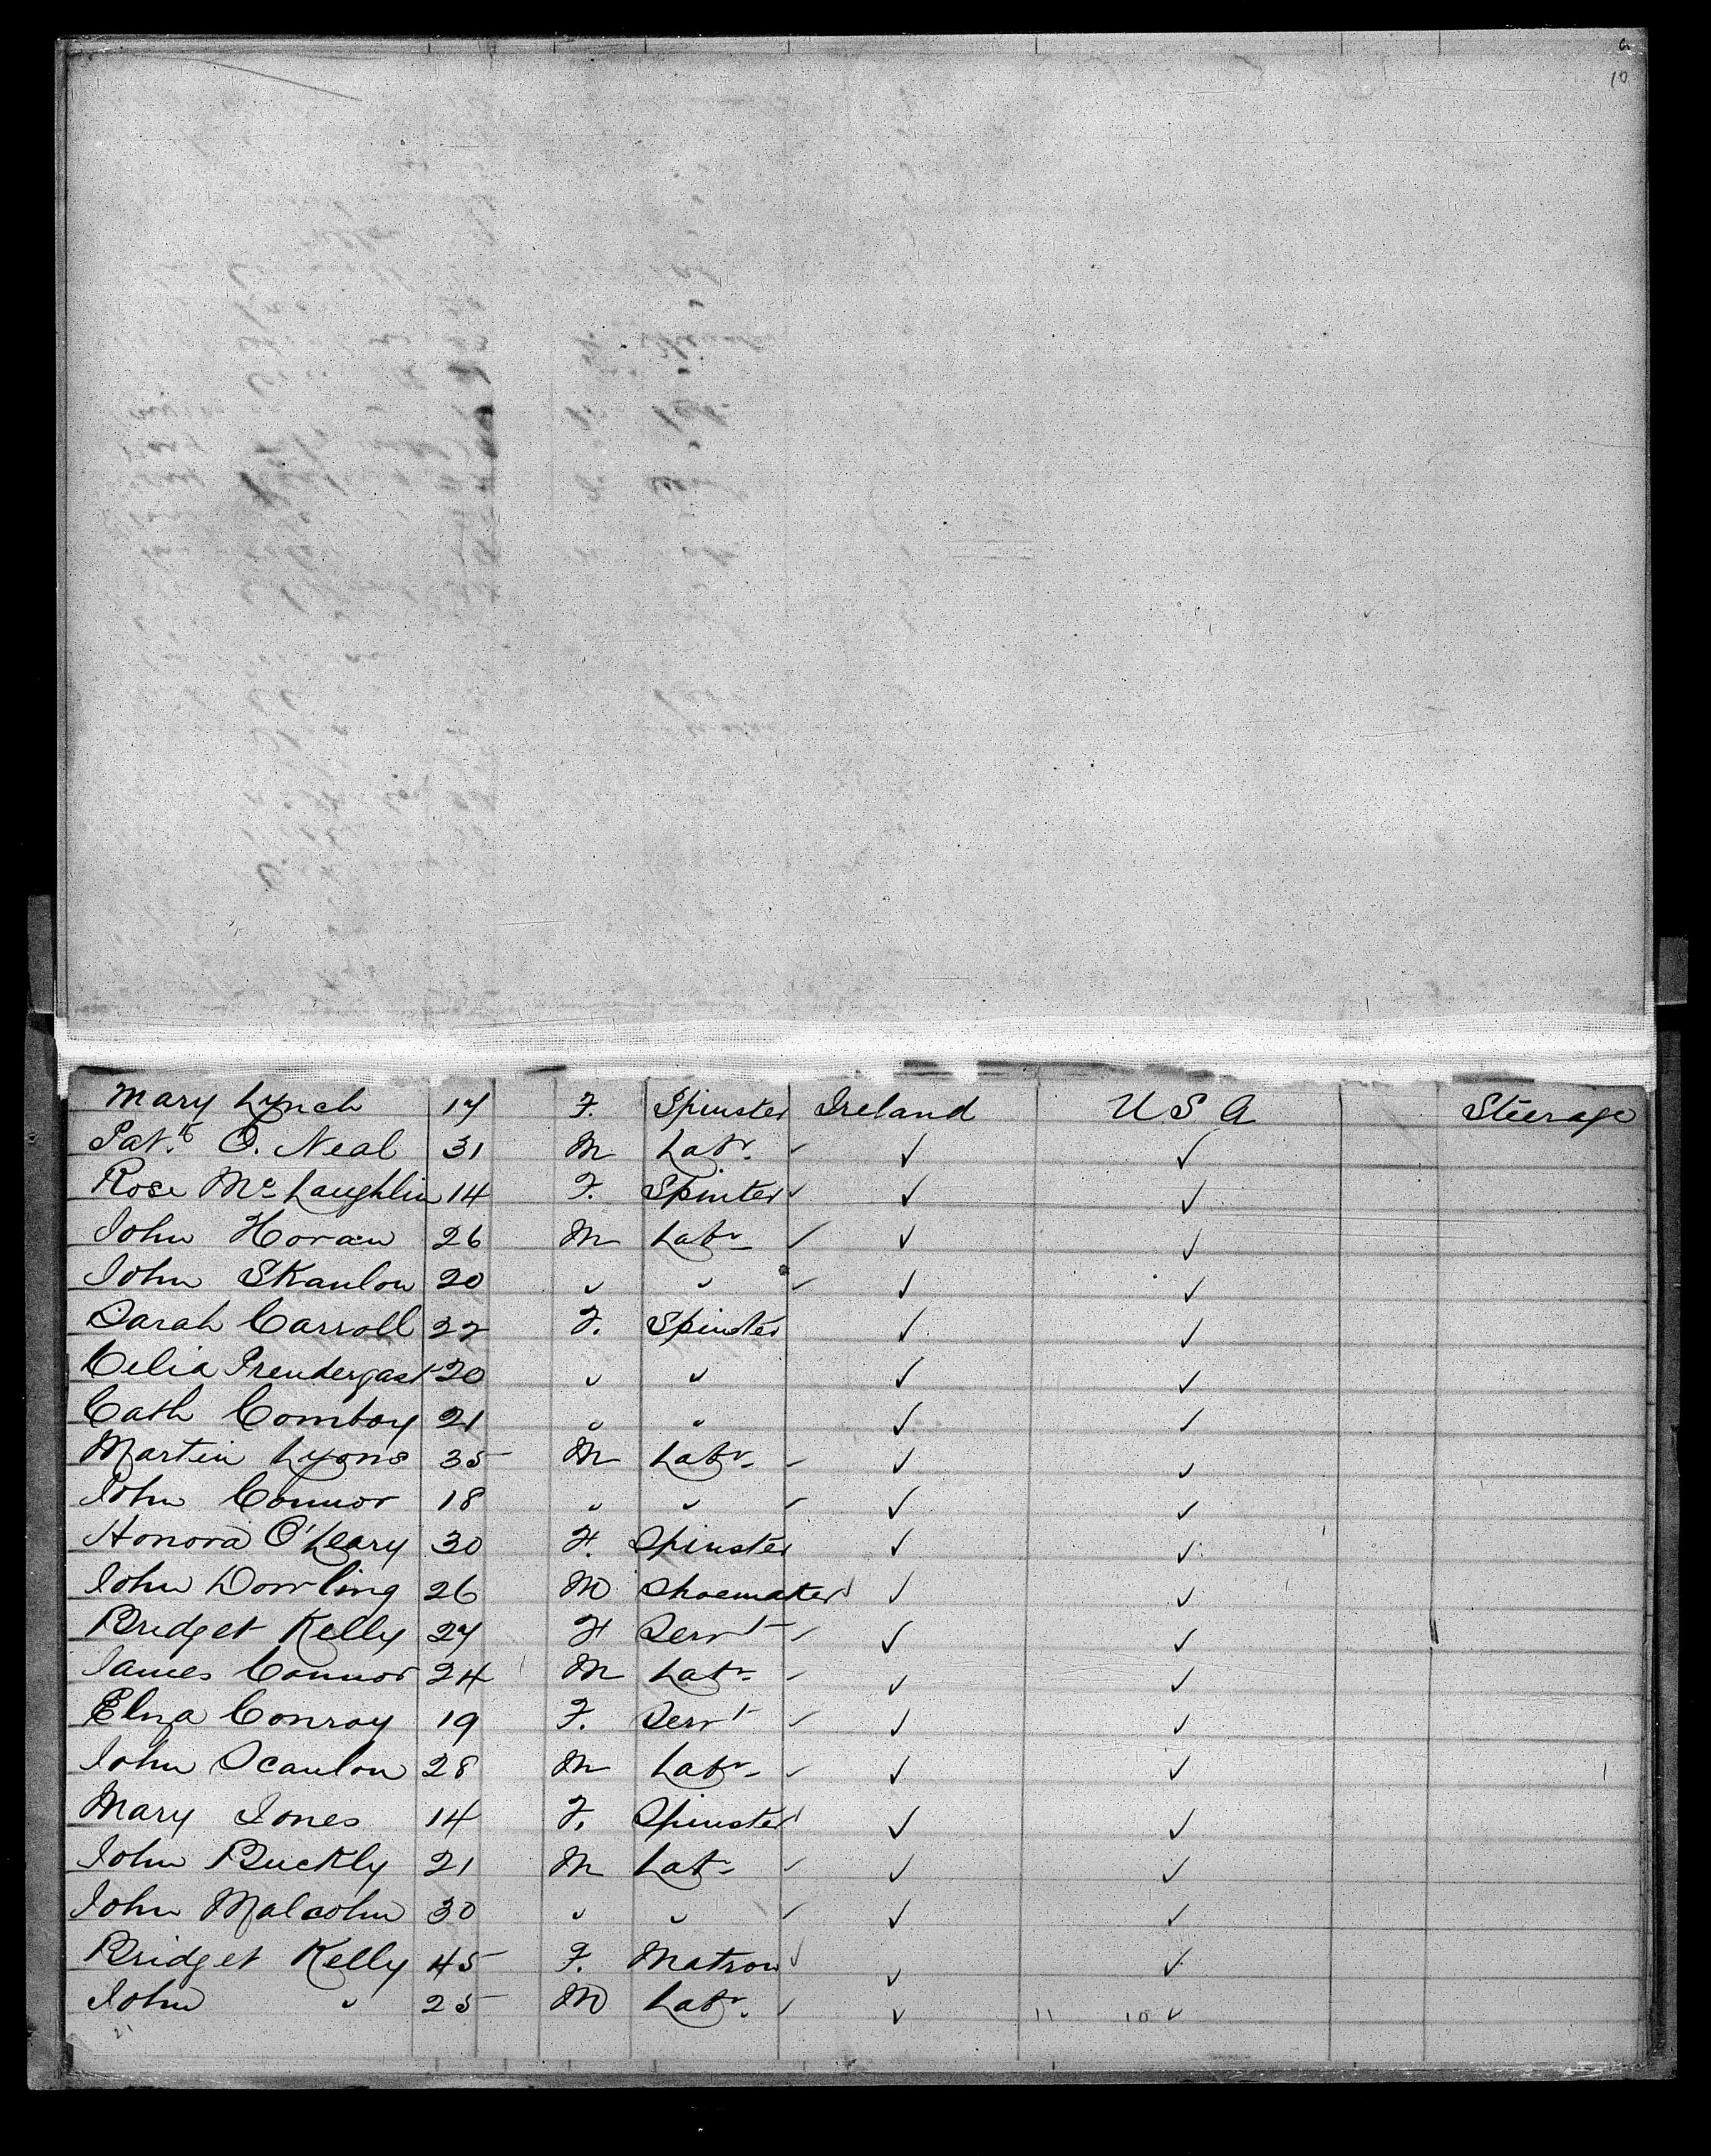 10
Mary Lynch 17 F. Spinster Ireland U S A Steerage
Patk. O. Neal 31 M Labr. ✓ ✓ ✓
Rose McLaughlin 14 F. Spinter ✓ ✓ ✓
John Horan 26 M Labr ✓ ✓ ✓
John Skanlon 20 " " ✓ ✓ ✓
Sarah Carroll 22 F. Spinster ✓ ✓
Celia Prendergast 20 " " ✓ ✓
Cath Comboy 21 " " ✓ ✓
Martin Lyons 35 M Labr ✓ ✓ ✓
John Connor 18 " " ✓ ✓ ✓
Honora O'Leary 30 F. Spinster ✓ ✓
John Dowling 26 M Shoemaker ✓ ✓ ✓
Bridget Kelly 27 F Servt ✓ ✓ ✓
James Connor 24 M Labr ✓ ✓ ✓
Eliza Conroy 19 F. Servt ✓ ✓ ✓
John Scanlon 28 M Labr ✓ ✓ ✓
Mary Jones 14 F. Spinster ✓ ✓ ✓
John Buckly 21 M Labr ✓ ✓ ✓
John Malcolm 30 " " ✓ ✓ ✓
Bridget Kelly 45 F. Matron ✓ ✓ ✓
John " 25 M Labr. ✓ ✓ 11 10 ✓
21